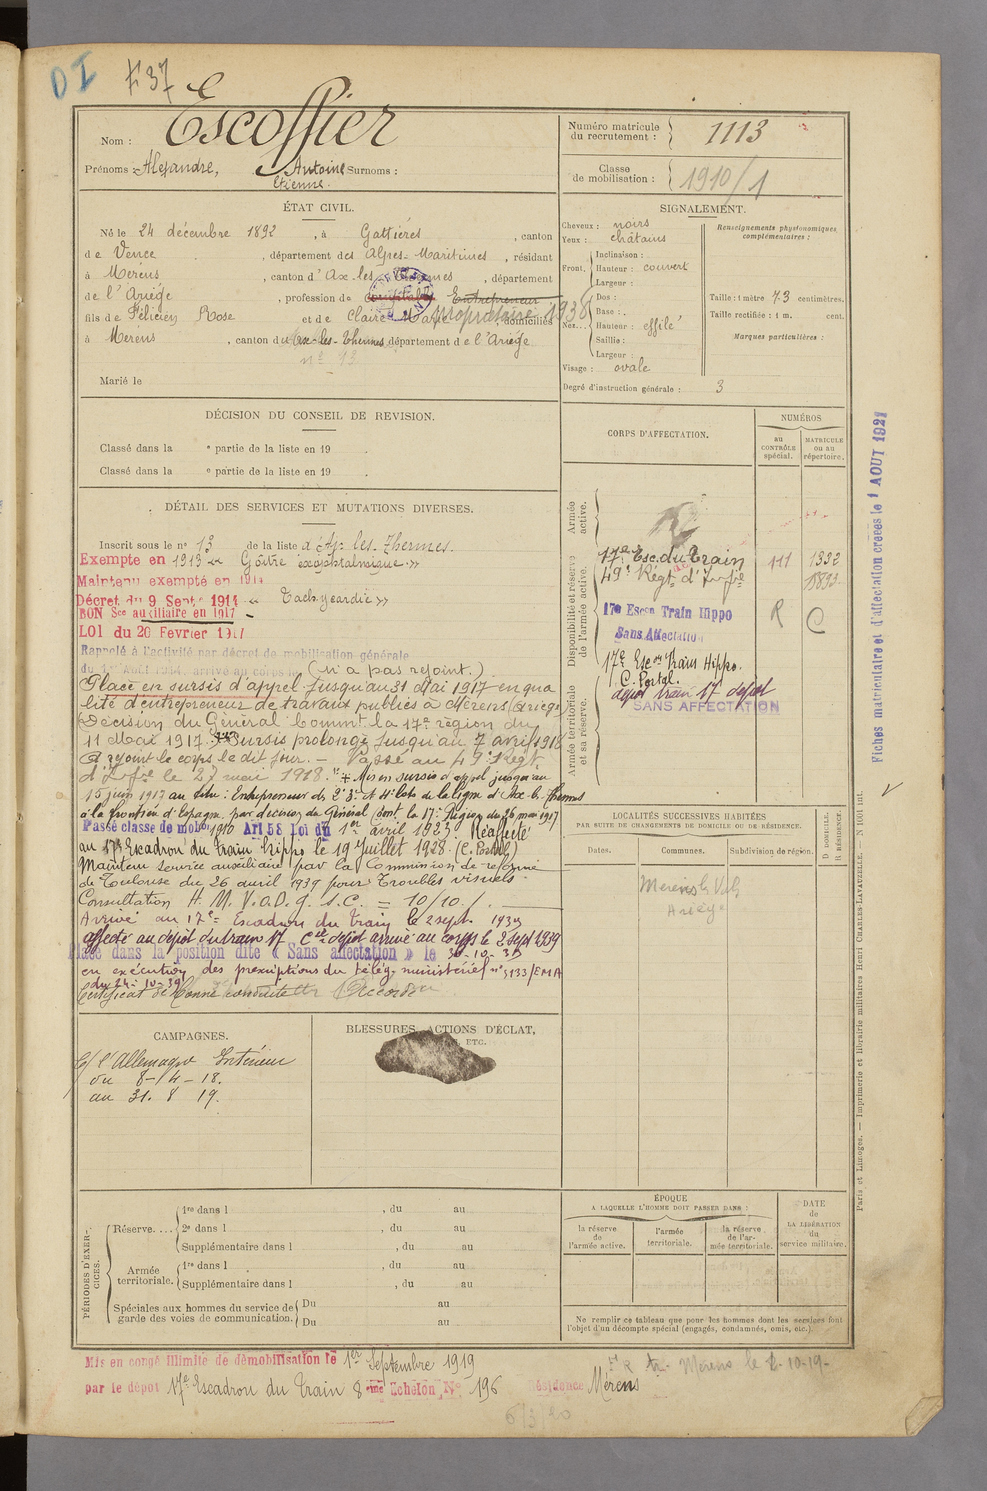 DI
F 37
Nom : Escoffier
Prénoms : Alexandre, Antoine Surnoms :
Etienne.
Numéro matricule
du recrutement : 1113
Classe
de mobilisation : 1910/1
ÉTAT CIVIL.
Né le 24 décembre 1892, à Gattières, canton
de Vence, département des Alpes-Maritimes, résidant
à Merens, canton d'Ax les Thermes, département
de l'Ariège, profession de comptable Entrepreneur
propriétaire 1938
fils de Félicien Rose et de Claire Marie, domiciliés
à Mérens, canton du Ax-les-Thermes département de l'Ariège
n° 13
Marié le
SIGNALEMENT.
Cheveux : noirs
Yeux : châtains
Front,
Inclinaison :
Hauteur : couvert
Largeur :
Nez...
Dos :
Base :
Hauteur : effilé
Saillie :
Largeur :
Visage : ovale
Renseignements physionomiques
complémentaires :
Taille : 1 mètre 73 centimètres.
Taille rectifiée : 1 m. cent.
Marques particulières :
Degré d'instruction générale : 3
DÉCISION DU CONSEIL DE REVISION.
Classé dans la e partie de la liste en 19 .
Classé dans la e partie de la liste en 19 .
CORPS D'AFFECTATION.
NUMÉROS
au
CONTRÔLE
spécial.
MATRICULE
ou au
répertoire.
DÉTAIL DES SERVICES ET MUTATIONS DIVERSES.
Inscrit sous le n° 13 de la liste d'Ax les Thermes.
Exempté en 1913 « Goître exophtalmique »
Maintenu exempté en 1914
Décret du 9 Septe 1914 « Tachycardie »
BON Sce auxiliaire en 1917
LOI du 20 Fevrier 1917
Rappelé à l'activité par décret de mobilisation générale
du 1er Août 1914, arrivé au corps le (n'a pas rejoint.)
Placé en sursis d'appel jusqu'au 31 Mai 1917 en qua
lité d'entrepreneur de travaux publics à Mérens (Ariège)
Décision du Général Commt la 17e région du
11 Mai 1917. Sursis prolongé jusqu'au 7 avril 1918
A rejoint le corps le dit jour. – Passé au 49e Régt
d'Infie le 27 mai 1918. + Mis en sursis d'appel jusqu'au
15 juin 1917 au titre : Entrepreneur des 2e 3e et 4e lots de la ligne d'Ax-l.-Thermes
à la frontière d'Espagne, par décision du Général Comt. la 17e Région du 26 mai 1917
Passé classe de mobon 1910 Art 58 Loi du 1er avril 1923. Réaffecté
au 17e Escadron du train hippo le 19 Juillet 1928. (C. Postal)
Maintenu service auxiliaire par la Commission de réforme
de Toulouse du 26 avril 1939 pour troubles visuels.
Consultation H. M. V.O.D.g. s.c. = 10/10.
Arrivé au 17e Escadron du Train le 2 sept. 1939
affecté au dépôt du train 17 Cie dépôt arrivé au corps le 2 sept 1939
Placé dans la position dite « Sans affectation » le 30-10-39
en exécution des prescriptions du télég. ministériel n° 5133/EMA
du 24-10-39
Certificat de bonne conduite Accordé
Armée
active.
Disponibilité et réserve
de l'armée active.
17e Esc. du Train 111 1332
49e Régt d'Infie
17e Escon Train Hippo R C
Sans Affectation
Armée territoriale
et sa réserve.
17e Escon Train Hippo.
C. Postal.
dépôt train 17 dépôt
SANS AFFECTATION
LOCALITÉS SUCCESSIVES HABITÉES
PAR SUITE DE CHANGEMENTS DE DOMICILE OU DE RÉSIDENCE.
Dates.
Communes.
Subdivision de région.
D DOMICILE.
R RÉSIDENCE.
Merens
Ariège
CAMPAGNES.
C/ l'Allemagne Intérieur
du 8-4-18.
au 31. 8 19.
BLESSURES, ACTIONS D'ÉCLAT,
ETC.
PÉRIODES D'EXERCICES.
Réserve....
1re dans l , du au
2e dans l , du au
Supplémentaire dans l , du au
Armée
territoriale.
1re dans l , du au
Supplémentaire dans l , du au
Spéciales aux hommes du service de
garde des voies de communication.
Du au
Du au
ÉPOQUE
A LAQUELLE L'HOMME DOIT PASSER DANS :
la réserve
de
l'armée active.
l'armée
territoriale.
la réserve
de l'ar-
mée territoriale.
DATE
de
LA LIBÉRATION
du
service militaire.
Ne remplir ce tableau que pour les hommes dont les services font
l'objet d'un décompte spécial (engagés, condamnés, omis, etc.).
Mis en congé illimité de démobilisation le 1er Septembre 1919
par le dépôt 17e Escadron du Train 8eme Echelon, N° 196 Résidence Mérens
Mérens le 2-10-19-
6/3/20
Fiches matriculaire et d'affectation créées le 1 AOUT 1921
Paris et Limoges. — Imprimerie et librairie militaires Henri CHARLES-LAVAUZELLE. — N° 1001 int.